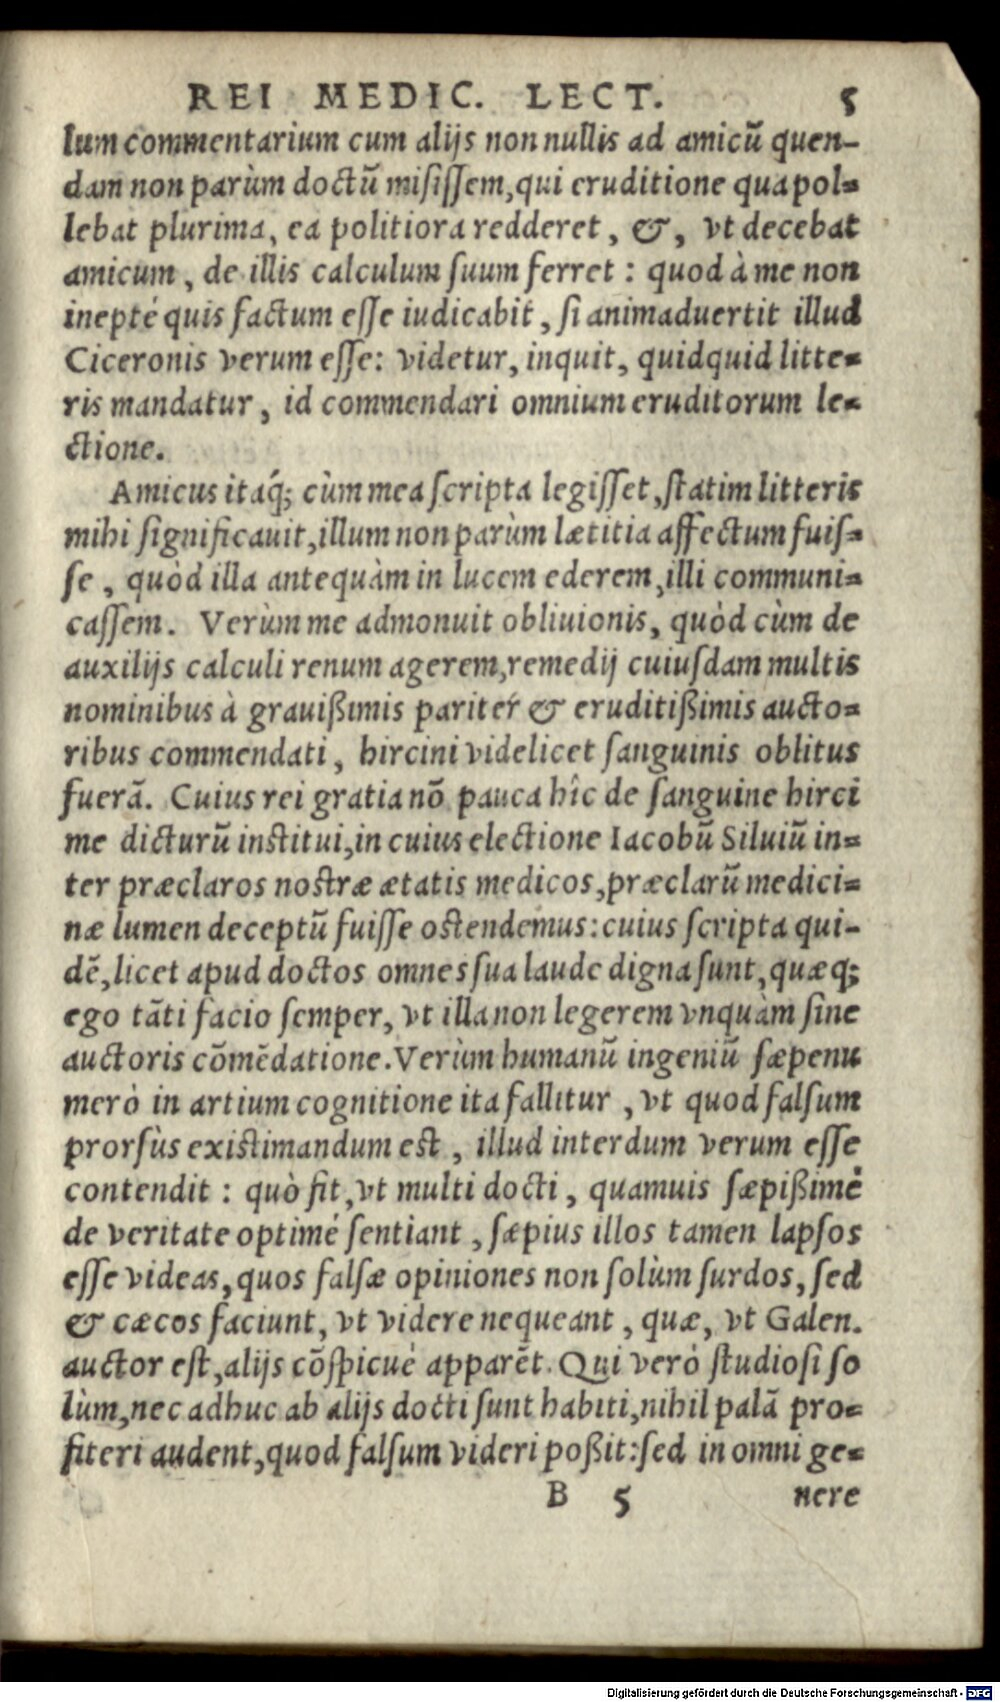 REI MEDIC. LECT. 5
lum commentarium cum alijs non nullis ad amicũ quen-
dam non parùm doctũ misissem, qui eruditione qua pol-
lebat plurima, ea politiora redderet, &, vt decebat
amicum, de illis calculum suum ferret: quod à me non
inepté quis factum esse iudicabit, si animaduertit illud
Ciceronis verum esse: videtur, inquit, quidquid litte-
ris mandatur, id commendari omnium eruditorum le-
ctione.
Amicus itaq́; cùm mea scripta legisset, statim litteris
mihi significauit, illum non parùm lætitia affectum fuis-
se, quòd illa antequàm in lucem ederem, illi communi-
cassem. Verùm me admonuit obliuionis, quòd cùm de
auxilijs calculi renum agerem, remedij cuiusdam multis
nominibus à grauißimis pariter & eruditißimis aucto-
ribus commendati, hircini videlicet sanguinis oblitus
fuerã. Cuius rei gratia nõ pauca hîc de sanguine hirci
me dicturũ institui, in cuius electione Iacobũ Siluiũ in-
ter præclaros nostræ ætatis medicos, præclarũ medici-
næ lumen deceptũ fuisse ostendemus: cuius scripta qui-
dẽ, licet apud doctos omnes sua laude digna sunt, quæq;
ego tãti facio semper, vt illa non legerem vnquàm sine
auctoris cõmẽdatione. Verùm humanũ ingeniũ sæpenu
merò in artium cognitione ita fallitur, vt quod falsum
prorsùs existimandum est, illud interdum verum esse
contendit: quò fit, vt multi docti, quamuis sæpißimè
de veritate optimé sentiant, sæpius illos tamen lapsos
esse videas, quos falsæ opiniones non solùm surdos, sed
& cæcos faciunt, vt videre nequeant, quæ, vt Galen.
auctor est, alijs cõspicuè apparẽt. Qui verò studiosi so
lùm, nec adhuc ab alijs docti sunt habiti, nihil palã pro-
fiteri audent, quod falsum videri poßit: sed in omni ge-
B 5 nere
Digitalisierung gefördert durch die Deutsche Forschungsgemeinschaft - DFG